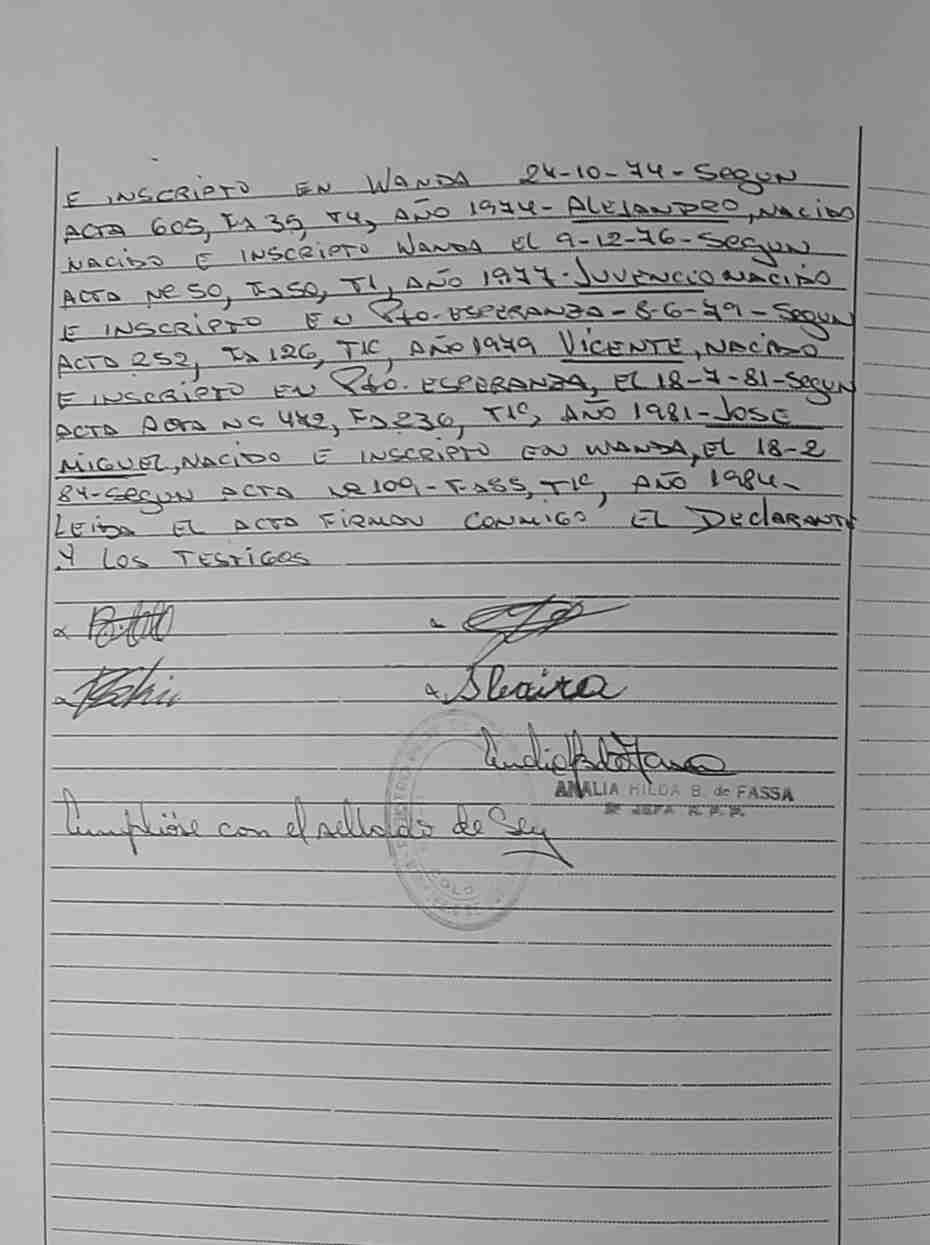 E INSCRIPTO EN WANDA 24-10-74- Segun
ACTA 605, Fº 35, T4, AÑO 1974- ALEJANDRO, NACIDO
NACIDO E INSCRIPTO WANDA EL 9-12-76- Segun
ACTA Nº 50, Fº 50, T1, AÑO 1977- JUVENCIO NACIDO
E INSCRIPTO EN Pto. ESPERANZA - 8-6-79 - Segun
ACTA 252, Fº 126, T1º, AÑO 1979 VICENTE, NACIDO
E INSCRIPTO EN Pto. ESPERANZA, EL 18-7-81- Segun
ACTA ACTA Nº 472, Fº 236, T1º, AÑO 1981- JOSE
MIGUEL, NACIDO E INSCRIPTO EN WANDA, EL 18-2
84- Segun ACTA Nº 109 - Fº 55, T1º, AÑO 1984-
LEIDA EL ACTA FIRMAN CONMIGO EL DECLARANTE
Y LOS TESTIGOS
ANALIA HILDA B. de FASSA
JEFA R.P.P.
Cumpliose con el sellado de Ley